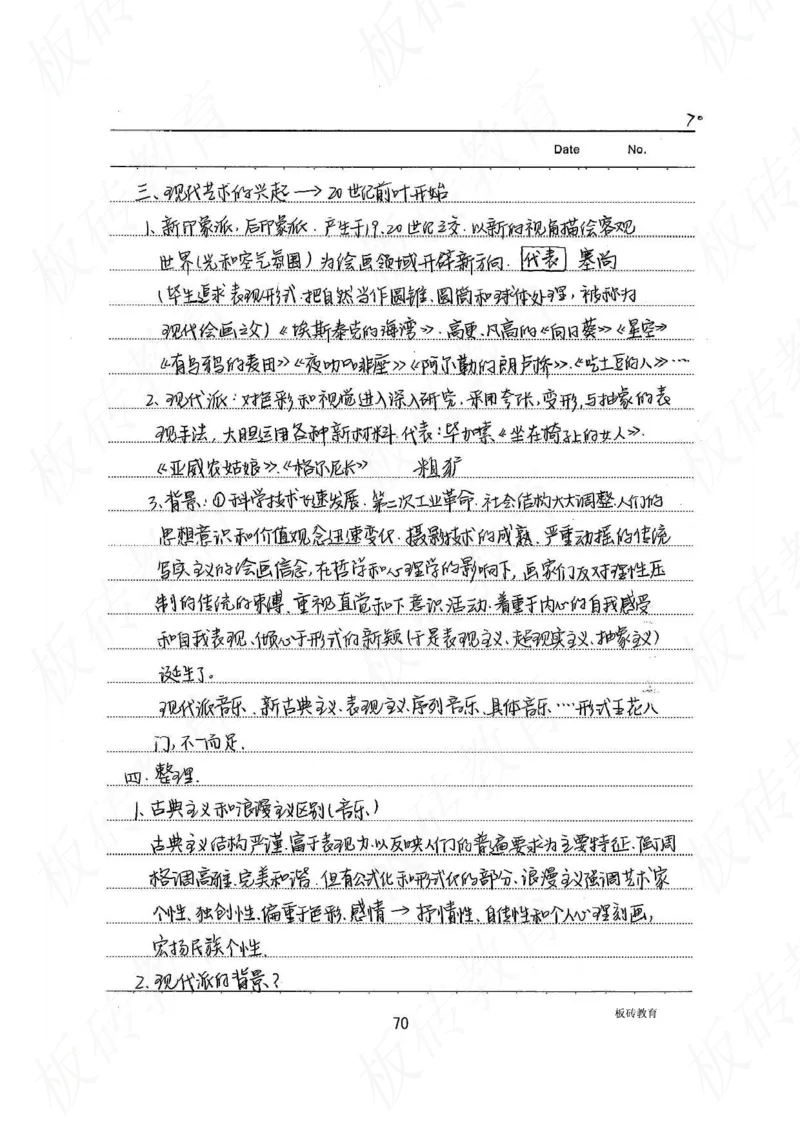 70
Date No.
三、现代艺术的兴起→20世纪前叶开始
1、新印象派,后印象派.产生于19、20世纪之交.以新的视角描绘客观
世界(光和空气氛围)为绘画领域开辟新方向. 代表 塞尚
(毕生追求表现形式.把自然当作圆锥、圆筒和球体处理,被称为
现代绘画之父)《埃斯泰克的海湾》.高更、凡高的《向日葵》《星空》
《有乌鸦的麦田》《夜咖啡座》《阿尔勒的朗卢桥》.《吃土豆的人》…
2、现代派:对色彩和视觉进入深入研究.采用夸张,变形,与抽象的表
现手法,大胆运用各种新材料.代表:毕加索《坐在椅子上的女人》.
《亚威农姑娘》.《格尔尼长》 粗犷
3、背景:①科学技术飞速发展.第二次工业革命.社会结构大大调整.人们的
思想意识和价值观念迅速变化.摄影技术的成熟、严重动摇的传统
写实主义的绘画信念,在哲学和心理学的影响下,画家们反对理性压
制的传统的束缚、重视直觉和下意识活动.着重于内心的自我感受
和自我表现、倾心于形式的新颖(于是表现主义、超现实主义、抽象主义)
诞生了。
现代派音乐、新古典主义、表现主义、序列音乐、具体音乐…形式五花八
门,不一而足.
四.整理.
1、古典主义和浪漫主义区别(音乐)
古典主义结构严谨.富于表现力.以反映人们的普遍要求为主要特征.强调
格调高雅.完美和谐.但有公式化和形式化的部分、浪漫主义强调艺术家
个性、独创性.偏重于色彩.感情→抒情性、自传性和个人心理刻画,
宏扬民族个性.
2、现代派的背景?
70
板砖教育